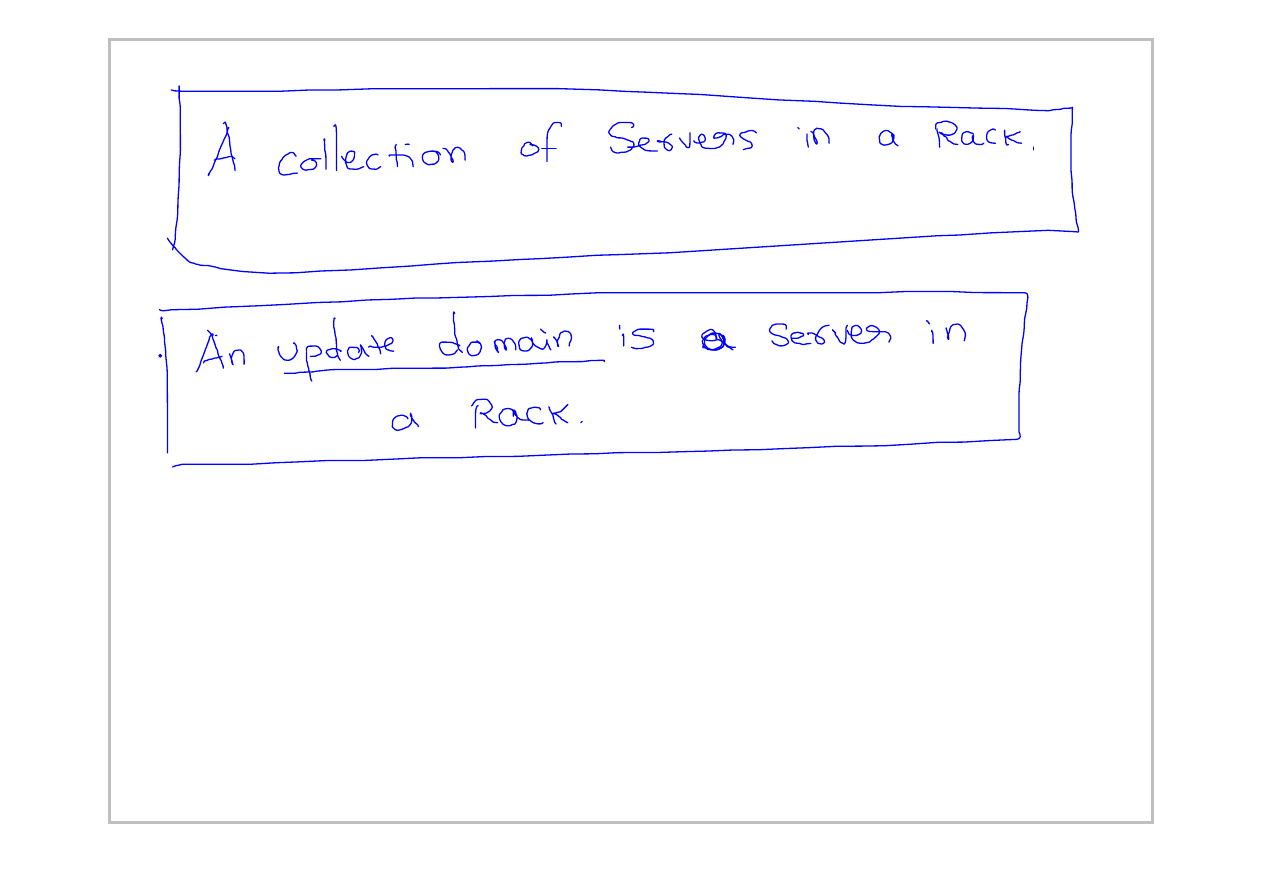 A collection of Servers in a Rack.
An update domain is a server in
a Rack.